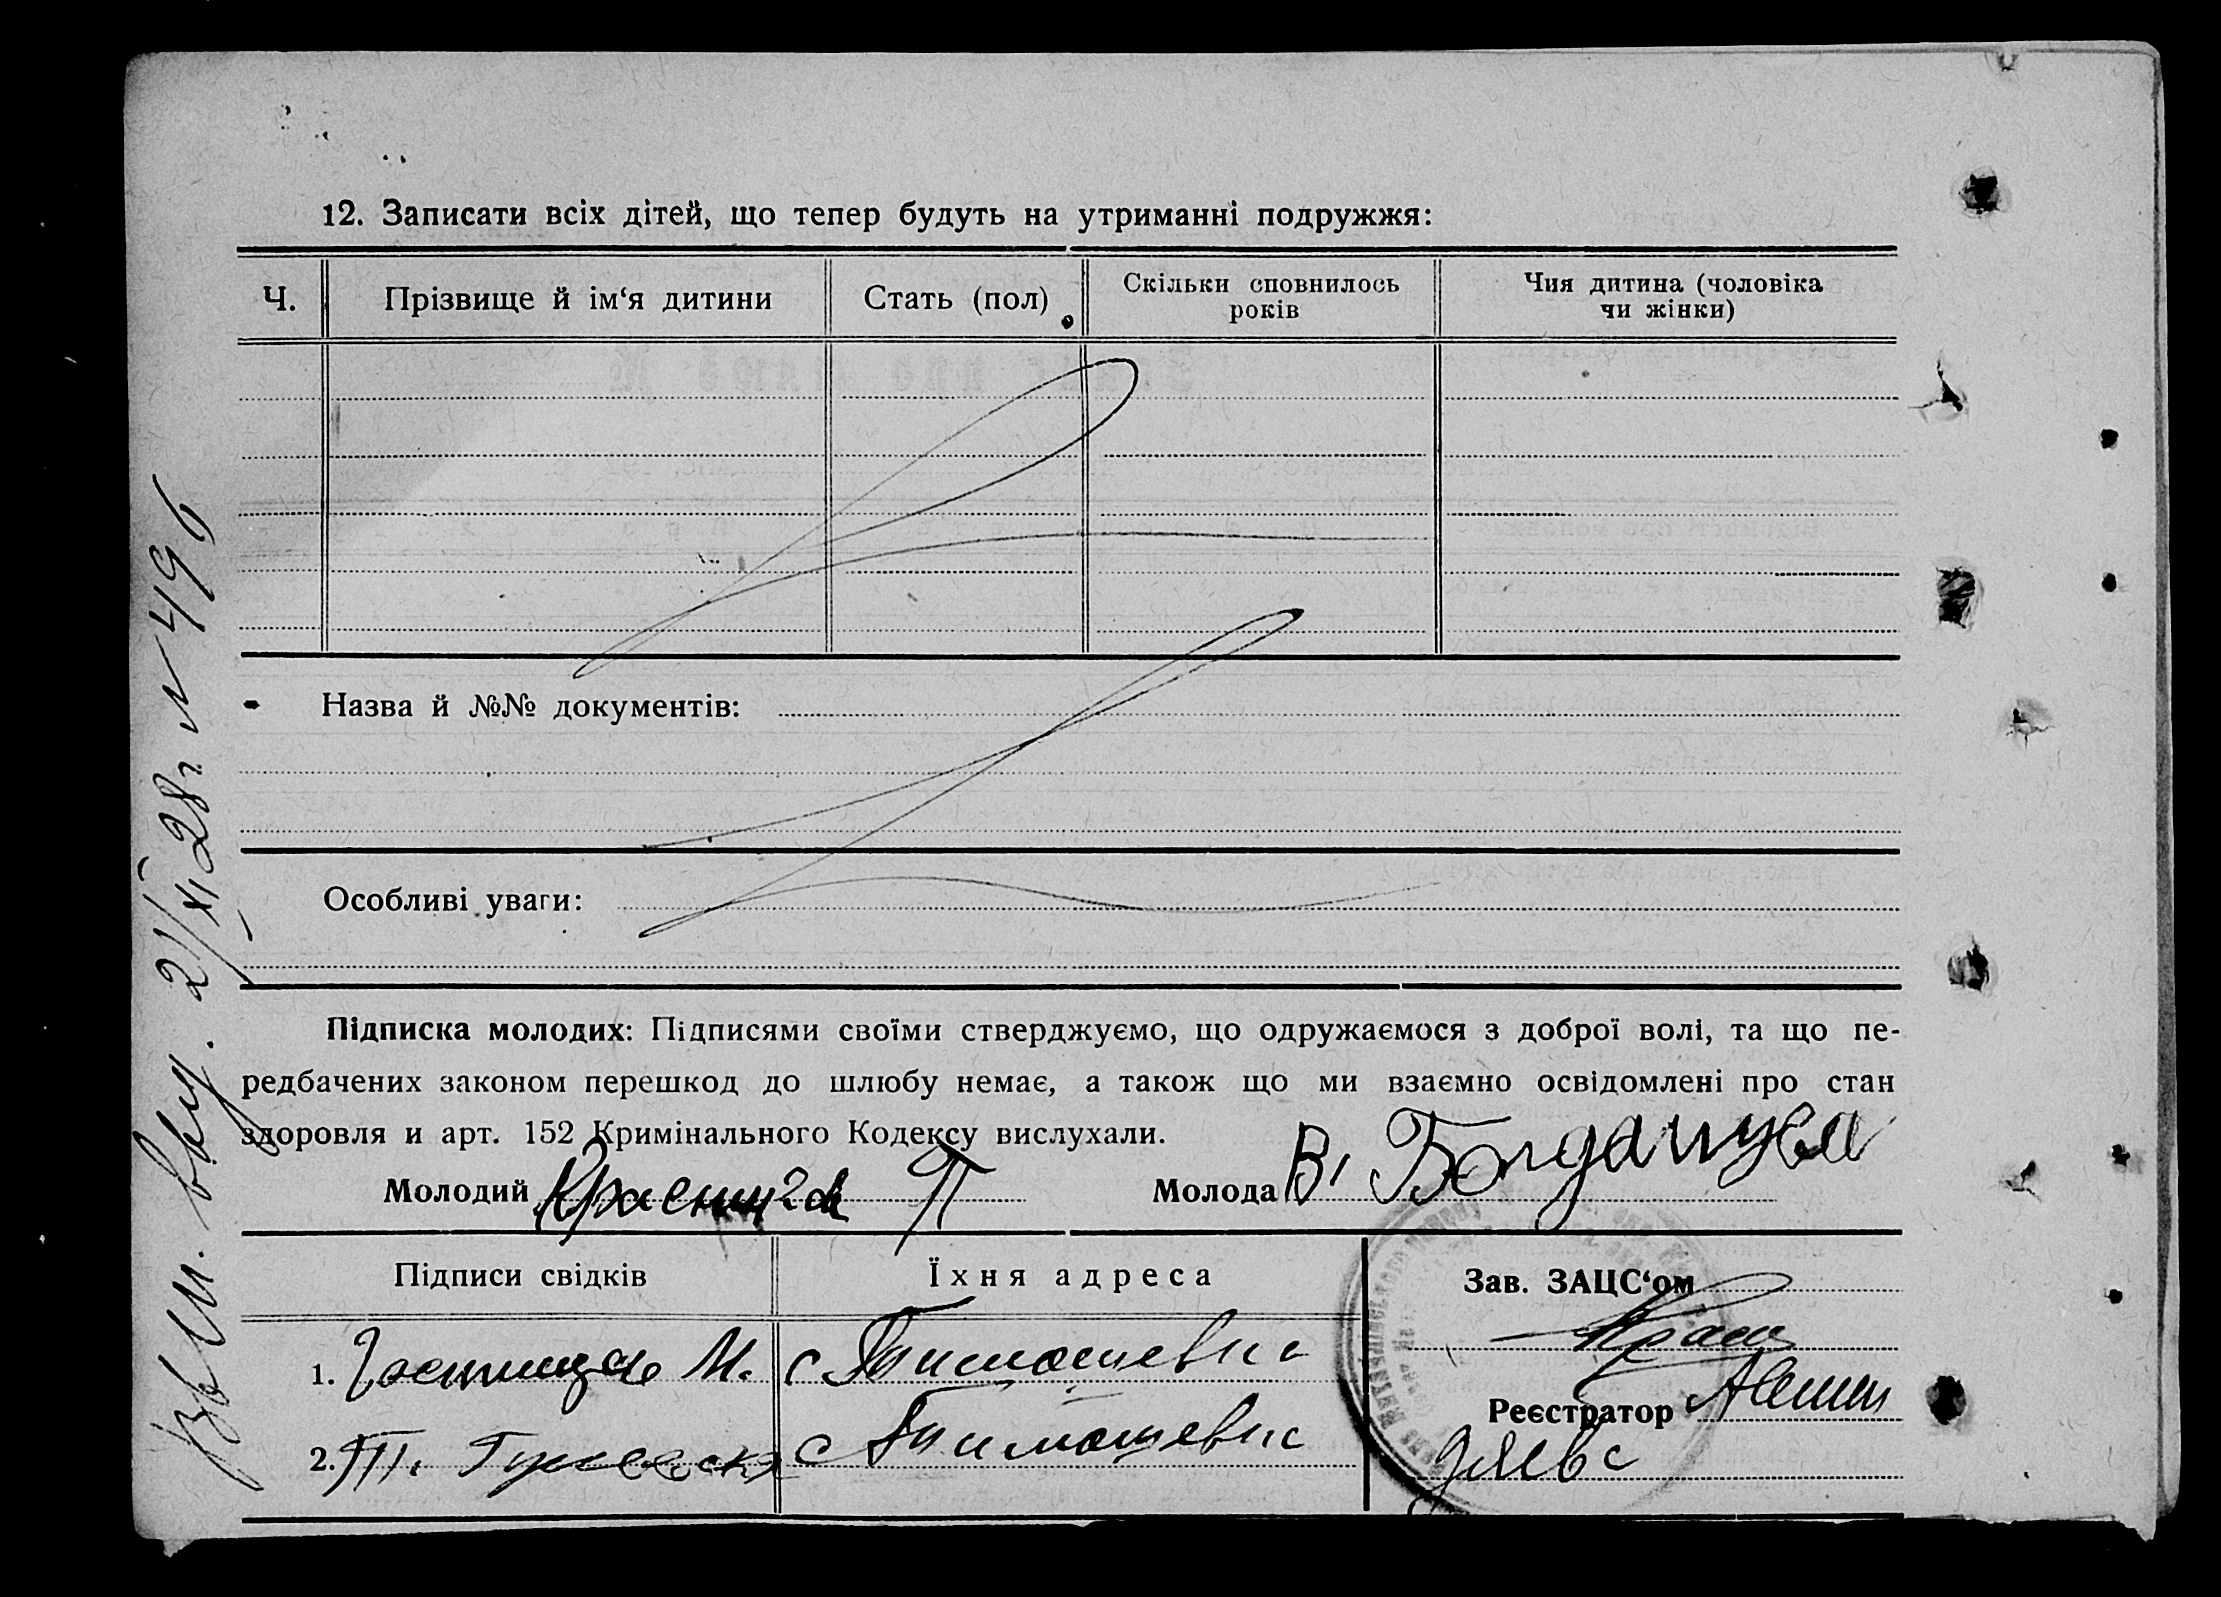 12. Записати всіх дітей, що тепер будуть на утриманні подружжя:
Ч.
Прізвище й ім‘я дитини
Стать (пол)
Скільки сповнилось
років
Чия дитина (чоловіка
чи жінки)
Назва й №№ документів:
Особливі уваги:
Підписка молодих: Підписями своїми стверджуємо, що одружаємося з доброї волі, та що пе-
редбачених законом перешкод до шлюбу немає, а також що ми взаємно освідомлені про стан
здоровля и арт. 152 Кримінального Кодексу вислухали.
Молодий
П
Молода В.
Підписи свідків
Їхня адреса
Зав. ЗАЦС‘ом
1. М. с Тимошевка
2. с Тимошевка
Реєстратор
21/XI 28г N 496